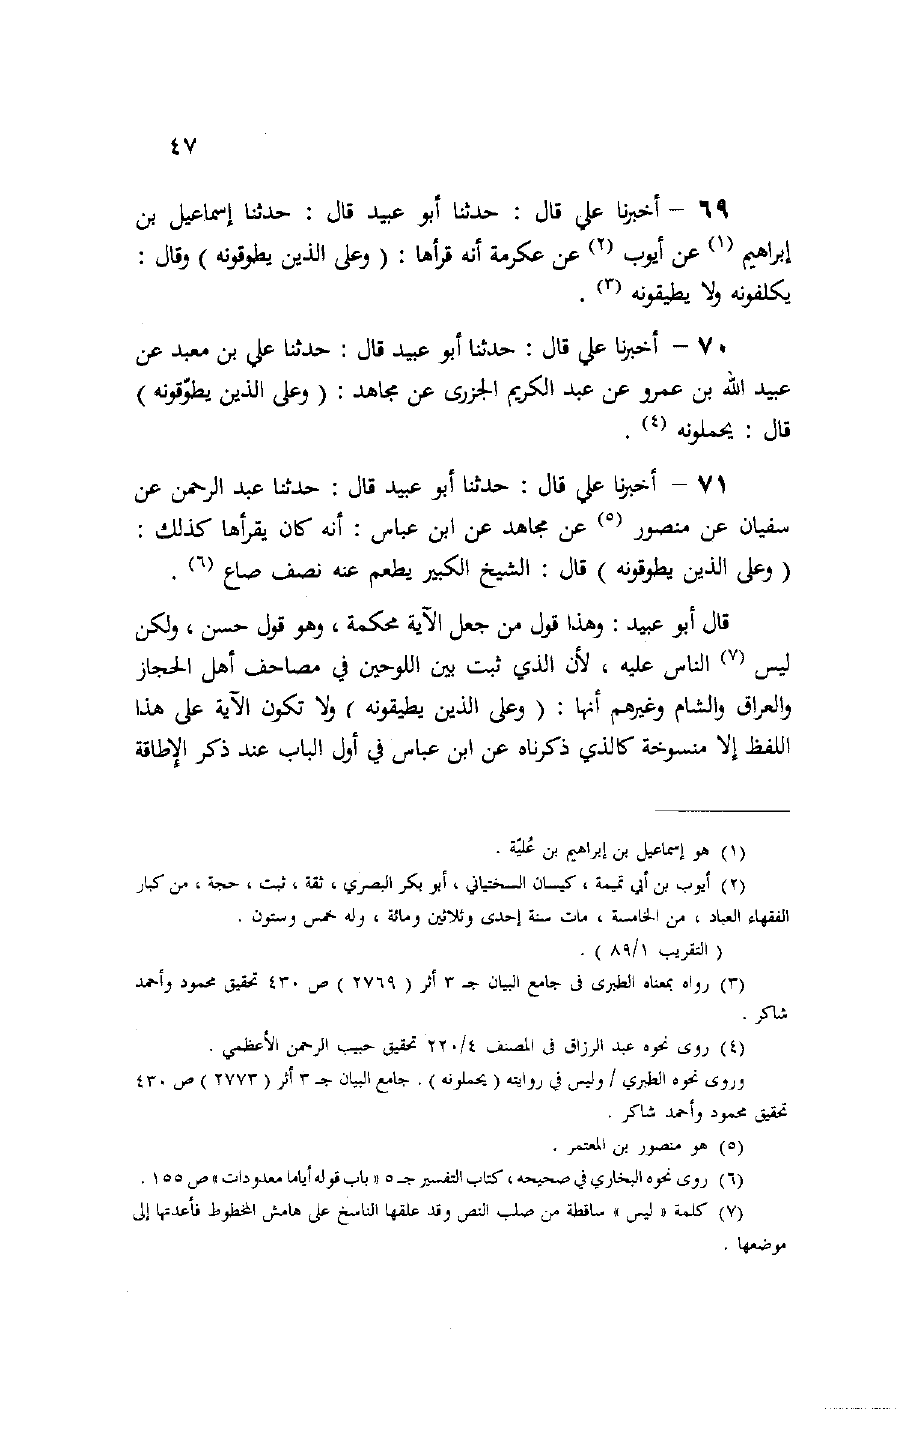 ٤٧
٦٩ – أخبرنا علي قال : حدثنا أبو عبيد قال : حدثنا إسماعيل بن
إبراهيم (١) عن أيوب (٢) عن عكرمة أنه قرأها : ( وعلى الذين يطوقونه ) وقال :
يكلفونه ولا يطيقونه (٣) .
٧٠ – أخبرنا علي قال : حدثنا أبو عبيد قال : حدثنا علي بن معبد عن
عبيد الله بن عمرو عن عبد الكريم الجزرى عن مجاهد : ( وعلى الذين يطوّقونه )
قال : يحملونه (٤) .
٧١ – أخبرنا علي قال : حدثنا أبو عبيد قال : حدثنا عبد الرحمن عن
سفيان عن منصور (٥) عن مجاهد عن ابن عباس : أنه كان يقرأها كذلك :
( وعلى الذين يطوقونه ) قال : الشيخ الكبير يطعم عنه نصف صاع (٦) .
قال أبو عبيد : وهذا قول من جعل الآية محكمة ، وهو قول حسن ، ولكن
ليس (٧) الناس عليه ، لأن الذي ثبت بين اللوحين في مصاحف أهل الحجاز
والعراق والشام وغيرهم أنها : ( وعلى الذين يطيقونه ) ولا تكون الآية على هذا
اللفظ إلا منسوخة كالذي ذكرناه عن ابن عباس في أول الباب عند ذكر الإطاقة
(١) هو إسماعيل بن إبراهيم بن عُليّة .
(٢) أيوب بن أبي تميمة ، كيسان السختياني ، أبو بكر البصري ، ثقة ، ثبت ، حجة ، من كبار
الفقهاء العباد ، من الخامسة ، مات سنة إحدى وثلاثين ومائة ، وله خمس وستون .
( التقريب ٨٩/١ ) .
(٣) رواه بمعناه الطبرى فى جامع البيان جـ ٣ أثر ( ٢٧٦٩ ) ص ٤٣٠ تحقيق محمود وأحمد
شاكر .
(٤) روى نحوه عبد الرزاق فى المصنف ٢٢٠/٤ تحقيق حبيب الرحمن الأعظمي .
وروى نحوه الطبري / وليس في روايته ( يحملونه ) . جامع البيان جـ ٣ أثر ( ٢٧٧٣ ) ص ٤٣٠
تحقيق محمود وأحمد شاكر .
(٥) هو منصور بن المعتمر .
(٦) روى نحوه البخاري في صحيحه ، كتاب التفسير جـ ٥ « باب قوله أياما معدودات » ص ١٥٥ .
(٧) كلمة « ليس » ساقطة من صلب النص وقد علقها الناسخ على هامش المخطوط فأعدتها إلى
موضعها .